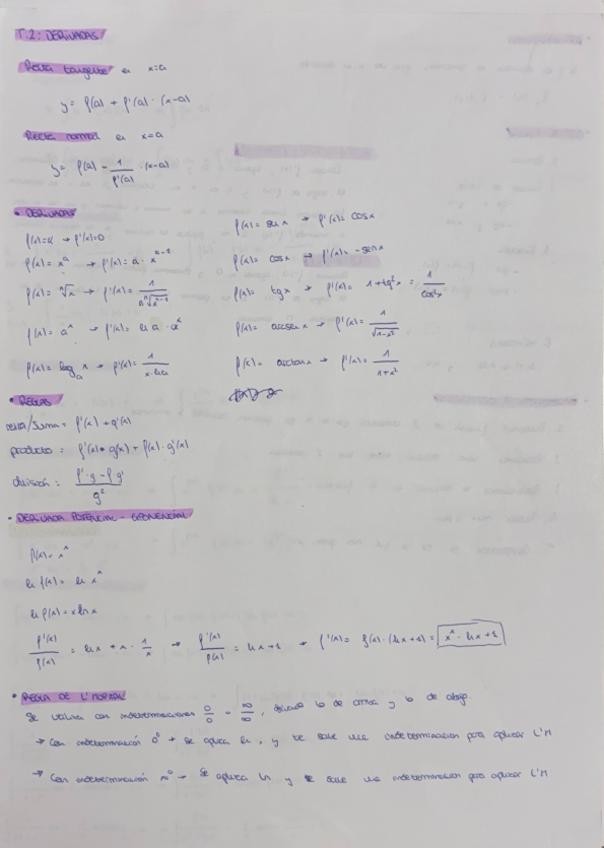 T.2: DERIVADAS
Recta tangente en x=a
y= f(a) + f'(a) · (x-a)
Recta normal en x=a
y= f(a) - 1/f'(a) · (x-a)
• DERIVADAS
f(x)=K → f'(x)=0
f(x)= x^a → f'(x)= a · x^(a-1)
f(x)= ⁿ√x → f'(x)= 1/(n ⁿ√(x^(n-1)))
f(x)= a^x → f'(x)= ln a · a^x
f(x)= log_a x → f'(x)= 1/(x·ln a)
f(x)= sen x → f'(x)= cos x
f(x)= cos x → f'(x)= -sen x
f(x)= tg x → f'(x)= 1+tg²x = 1/cos²x
f(x)= arcsen x → f'(x)= 1/√(1-x²)
f(x)= arctan x → f'(x)= 1/(1+x²)
• REGLAS
resta/suma = f'(x) + g'(x)
producto = f'(x) · g(x) + f(x) · g'(x)
división: (f'·g - f·g')/g²
• DERIVADA POTENCIAL - EXPONENCIAL
f(x)= x^x
ln f(x)= ln x^x
ln f(x)= x ln x
f'(x)/f(x) = ln x + x · 1/x → f'(x)/f(x) = ln x + 1 → f'(x)= f(x) · (ln x + 1) = x^x · ln x + 1
• REGLA DE L'HOPITAL
Se utiliza con indeterminaciones 0/0 - ∞/∞, lo de arriba y lo de abajo.
→ Con indeterminación 0^0 → se aplica ln, y te sale una indeterminación para aplicar L'H
→ Con indeterminación ∞^0 → Se aplica ln y te sale una indeterminación para aplicar L'H